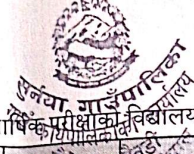 सुर्नया गाउँपालिका
गाउँकार्यपालिकाको कार्यालय
वार्षिक परीक्षाको विद्यालय